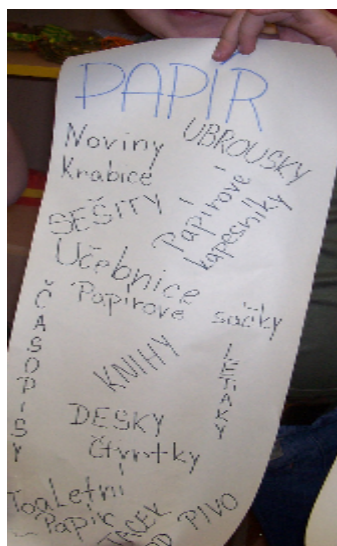 PAPÍR
Noviny
UBROUSKY
Krabice
Papírové
kapesníky
SEŠITY
Učebnice
Papírové sáčky
ČASOPISY
LETÁKY
KNIHY
DESKY
čtvrtky
Toaletní
Papír
TÁCEK
OD PIVO